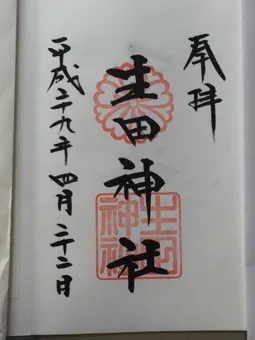 奉拝
生田神社
平成二九年四月二十二日
生田神社